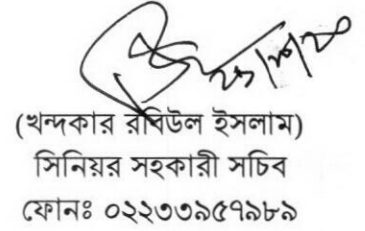 (খন্দকার রবিউল ইসলাম)
সিনিয়র সহকারী সচিব
ফোনঃ ০২২৩৩৯৫৭৯৮৯